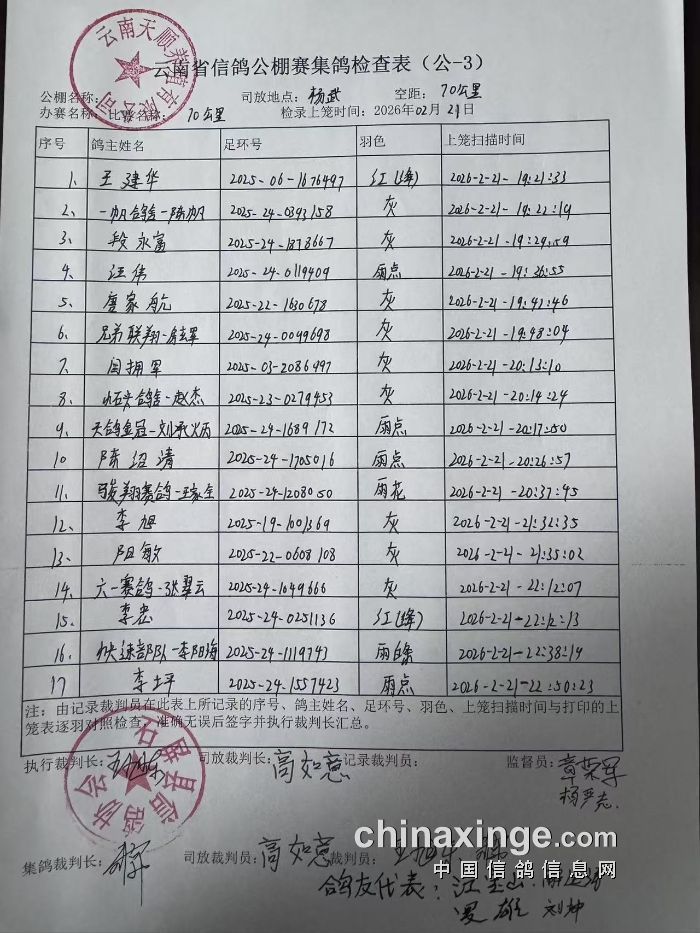 云南省信鸽公棚赛集鸽检查表（公-3）
云南天顺养殖有限公司
公棚名称： 司放地点：杨武 空距：70公里
办赛名称：比赛名称：70公里 检录上笼时间：2026年02月21日
序号 鸽主姓名 足环号 羽色 上笼扫描时间
1. 王建华 2025-06-1676497 红(绛) 2026-2-21-19:21:33
2. 一帆鸽舍-陈帆 2025-24-0393158 灰 2026-2-21-19:22:19
3. 段永富 2025-24-1878667 灰 2026-2-21-19:29:59
4. 汪伟 2025-24-0119409 雨点 2026-2-21-19:36:55
5. 唐家航 2025-22-1630678 灰 2026-2-21-19:41:46
6. 兄弟联翔- 2025-24-0049698 灰 2026-2-21-19:48:04
7. 闫拥军 2025-03-2086997 灰 2026-2-21-20:13:10
8. 小石头鸽舍-赵杰 2025-23-0279453 灰 2026-2-21-20:14:24
9. 天鸽金冠-刘承火丙 2025-24-1689172 雨点 2026-2-21-20:17:50
10 陈绍清 2025-24-1705016 雨点 2026-2-21-20:26:57
11. 骏翔赛鸽-王家全 2025-24-1208050 雨花 2026-2-21-20:37:45
12. 李旭 2025-19-1001369 灰 2026-2-21-21:32:35
13. 阳敏 2025-22-0608108 灰 2026-2-21-21:35:02
14. 六一赛鸽-张翠云 2025-24-1049666 灰 2026-2-21-22:12:07
15. 李忠 2025-24-0251136 红(绛) 2026-2-21-22:12:13
16. 快速部队-李阳海 2025-24-1119743 雨白条 2026-2-21-22:38:19
17 李士坪 2025-24-1557423 雨点 2026-2-21-22:50:23
注：由记录裁判员在此表上所记录的序号、鸽主姓名、足环号、羽色、上笼扫描时间与打印的上
笼表逐羽对照检查，准确无误后签字并执行裁判长汇总。
执行裁判长： 司放裁判长：高如意 记录裁判员： 监督员：章荣军
杨严志
石屏县信鸽协会
集鸽裁判长： 司放裁判员：高如意 裁判员：
鸽友代表：汪玉山
刘坤
chinaxinge.com
中国信鸽信息网